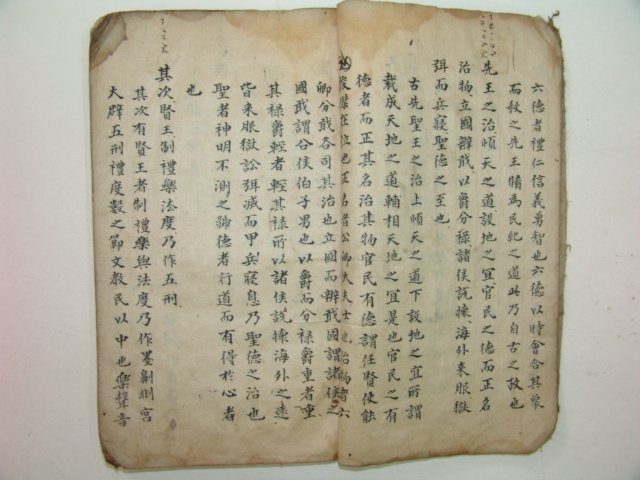 六德者禮仁信義勇智也六德以時會合其衆
而教之先王脩爲民紀之道此乃自古之政也
先王之治順天之道設地之宜官民之德而正名
治物立國辦職以爵分祿諸侯說懷海外來服獄
弭而兵寢聖德之至也
古先聖王之治上順天之道下設地之宜所謂
裁成天地之道輔相天地之宜是也官民之有
德者而正其名治其物官民有德謂任賢使能
俊傑在位也正名者公卿大夫士也治物者六
卿分職各司其治也立國而辦職國謂諸侯之
國職謂公侯伯子男也以爵而分祿爵重者重
其祿爵輕者輕其祿所以諸侯說懷海外之遠
皆來服獄訟弭減而甲兵寢息乃聖德之治也
聖者神明不測之號德者行道而有得於心者
也
其次賢王制禮樂法度乃作五刑
其次有賢王者制禮樂與法度乃作墨劓剕宮
大辟五刑禮度數之節文敎民以中也樂聲音